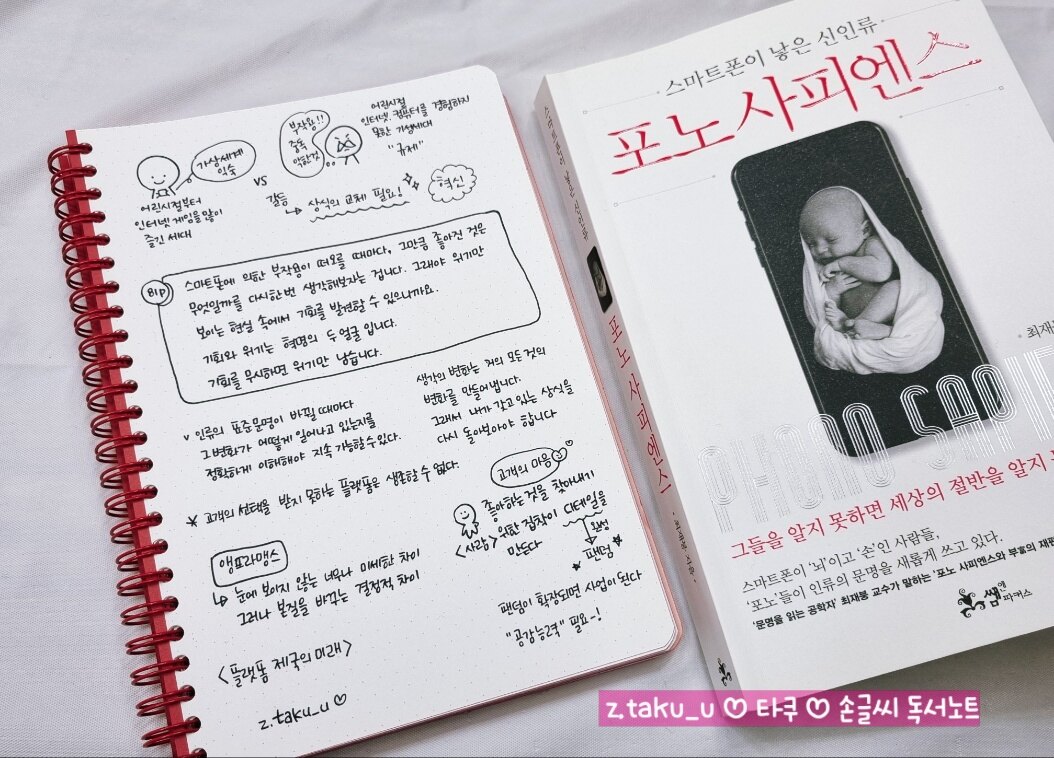 가상세계
익숙
어린시절부터
인터넷 게임을 많이
즐긴 세대
vs
부작용!!
중독
악한것
어린시절
인터넷, 컴퓨터를 경험하지
못한 기성세대
"규제"
갈등
상식의 교체 필요!
혁신
81p
스마트폰에 의한 부작용이 떠오를 때마다, 그만큼 좋아진 것은
무엇일까를 다시한번 생각해보자는 겁니다. 그래야 위기만
보이는 현실 속에서 기회를 발견할 수 있으니까요.
기회와 위기는 혁명의 두 얼굴 입니다.
기회를 무시하면 위기만 남습니다.
v 인류의 표준문명이 바뀔 때마다
그 변화가 어떻게 일어나고 있는지를
정확하게 이해해야 지속 가능할 수 있다.
생각의 변화는 거의 모든 것의
변화를 만들어냅니다.
그래서 내가 갖고 있는 상식을
다시 돌아보아야 합니다
* 고객의 선택을 받지 못하는 플랫폼은 생존할 수 없다.
고객의 마음
좋아하는 것을 찾아내기
위한 집착이 디테일을
만든다
<사람>
완성
팬덤
앵프라맹스
눈에 보이지 않는 너무나 미세한 차이
그러나 본질을 바꾸는 결정적 차이
팬덤이 확장되면 사업이 된다
"공감능력" 필요~!
<플랫폼 제국의 미래>
z.taku_u ♡
스마트폰이 낳은 신인류
포노 사피엔스
최재붕 지음
쌤앤파커스
스마트폰이 낳은 신인류
포노 사피엔스
최재
PHONO SAPIE
그들을 알지 못하면 세상의 절반을 알지 못
스마트폰이 '뇌'이고 '손'인 사람들,
'포노'들이 인류의 문명을 새롭게 쓰고 있다.
'문명을 읽는 공학자' 최재붕 교수가 말하는 '포노 사피엔스와 부의 재편
쌤앤파커스
z.taku_u ♡ 타쿠 ♡ 손글씨 독서노트